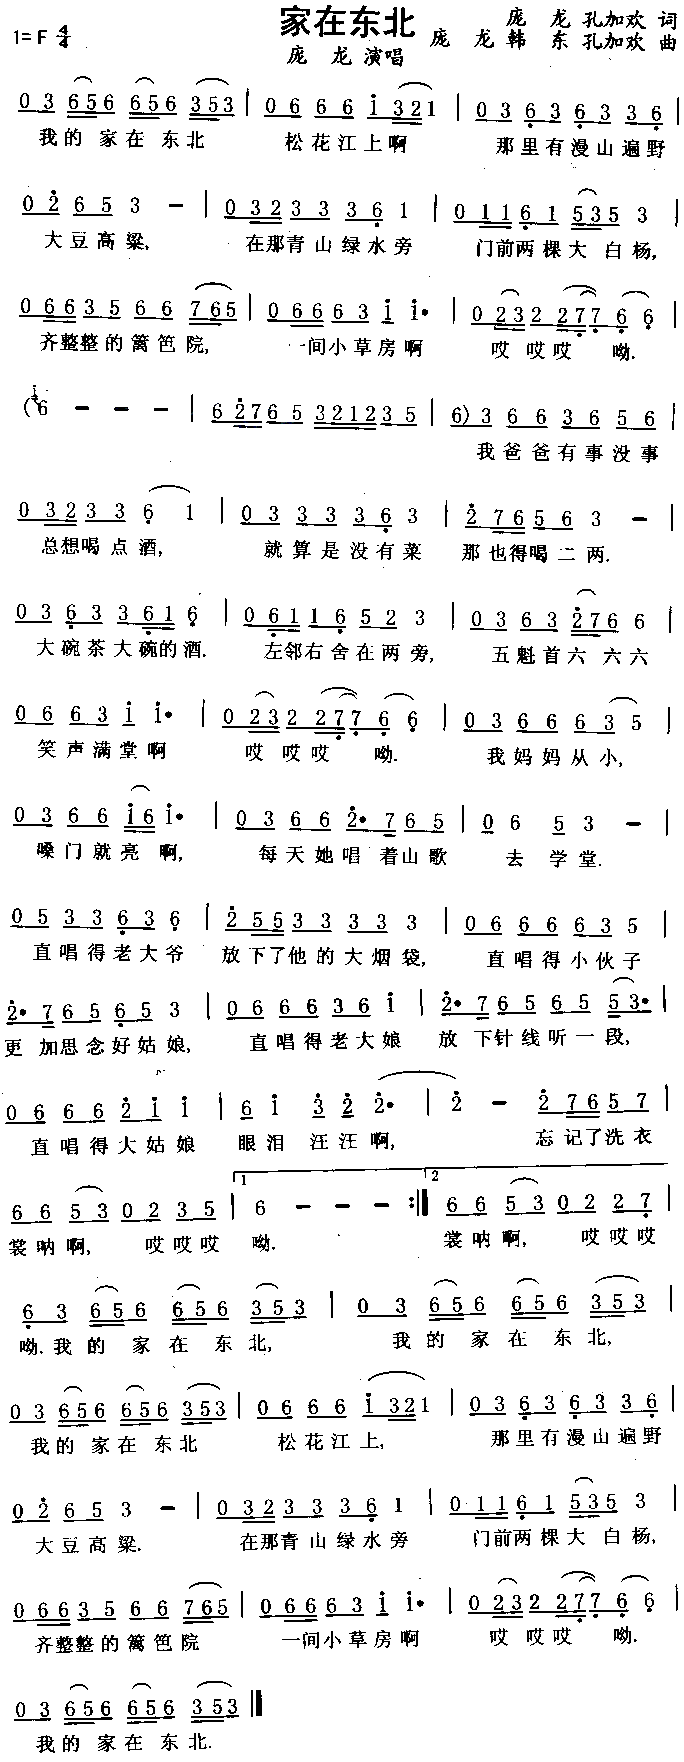 家在东北
1=F 4/4
庞 龙 孔加欢 词
庞 龙 韩 东 孔加欢 曲
庞 龙 演唱
0 3 6 5 6 6 5 6 3 5 3 | 0 6 6 6 i 3 2 1 | 0 3 6 3 6 3 3 6 |
我的 家在 东北 松花江上啊 那里有漫山遍野
0 2 6 5 3 － | 0 3 2 3 3 3 3 6 1 | 0 1 1 6 1 5 3 5 3 |
大豆高粱, 在那青山绿水旁 门前两棵大 白杨,
0 6 6 3 5 6 6 7 6 5 | 0 6 6 6 3 i i• | 0 2 3 2 2 7 7 6 6 |
齐整整的篱笆院, 一间小草房啊 哎 哎哎 呦.
(6 － － － | 6 2 7 6 5 3 2 1 2 3 5 | 6) 3 6 6 3 6 5 6 |
我爸爸有事没事
0 3 2 3 3 6 1 | 0 3 3 3 3 6 3 | 2 7 6 5 6 3 － |
总想喝点酒, 就算是没有菜 那也得喝二两.
0 3 6 3 3 6 1 6 | 0 6 1 1 6 5 2 3 | 0 3 6 3 2 7 6 6 |
大碗茶大碗的酒. 左邻右舍在两旁, 五魁首六 六六
0 6 6 3 i i• | 0 2 3 2 2 7 7 6 6 | 0 3 6 6 6 3 5 |
笑声满堂啊 哎 哎哎 呦. 我妈妈从小,
0 3 6 6 i 6 i• | 0 3 6 6 2• 7 6 5 | 0 6 5 3 － |
嗓门就亮 啊, 每天她唱 着山歌 去 学堂.
0 5 3 3 6 3 6 | 2 5 5 3 3 3 3 3 | 0 6 6 6 6 3 5 |
直唱得老大爷 放下了他的大烟袋, 直唱得小伙子
2• 7 6 5 6 5 3 | 0 6 6 6 6 3 6 i | 2• 7 6 5 6 5 5 3• |
更 加思念好姑娘, 直唱得老大娘 放 下针线听一段,
0 6 6 6 2 i i | 6 i 3 2 2• | 2 － 2 7 6 5 7 |
直唱得大姑娘 眼泪 汪汪啊, 忘记了洗衣
6 6 5 3 0 2 3 5 | 1 6 － － － :‖ 2 6 6 5 3 0 2 2 7 |
裳呐啊, 哎哎哎 呦. 裳呐啊, 哎哎哎
6 3 6 5 6 6 5 6 3 5 3 | 0 3 6 5 6 6 5 6 3 5 3 |
呦.我的 家 在 东 北, 我的 家 在 东 北,
0 3 6 5 6 6 5 6 3 5 3 | 0 6 6 6 i 3 2 1 | 0 3 6 3 6 3 3 6 |
我的 家在 东北 松花江上, 那里有漫山遍野
0 2 6 5 3 － | 0 3 2 3 3 3 3 6 1 | 0 1 1 6 1 5 3 5 3 |
大豆高粱. 在那青山绿水旁 门前两棵大 白杨,
0 6 6 3 5 6 6 7 6 5 | 0 6 6 6 3 i i• | 0 2 3 2 2 7 7 6 6 |
齐整整的篱笆院 一间小草房啊 哎 哎哎 呦.
0 3 6 5 6 6 5 6 3 5 3 ‖
我的 家在 东北.